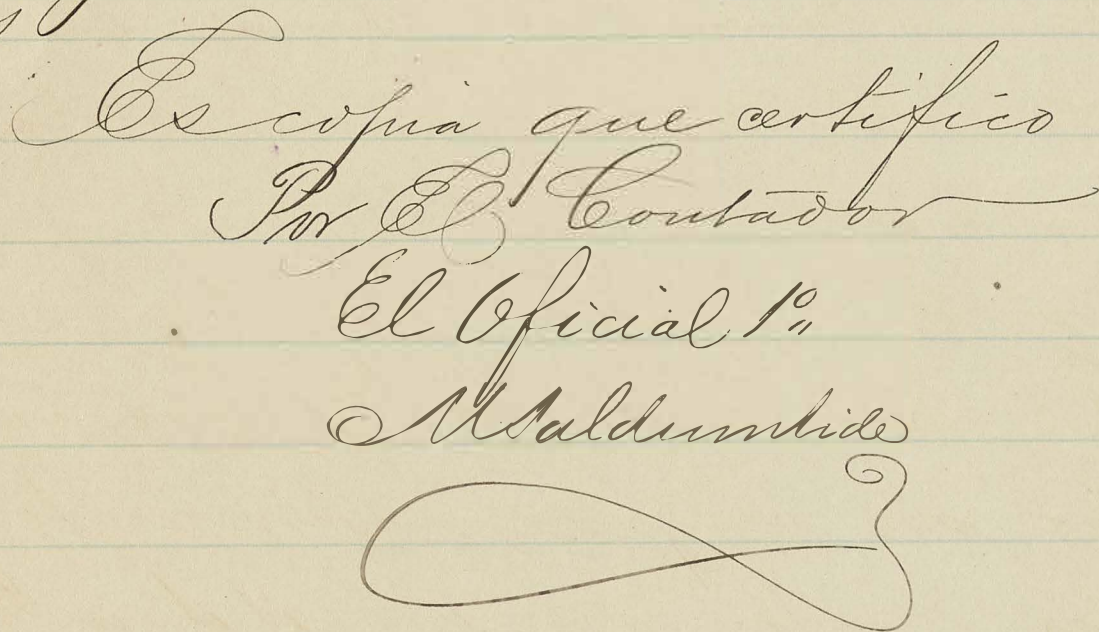 Es copia que certifico
Por El Contador
El Oficial 1º
M Saldumbide